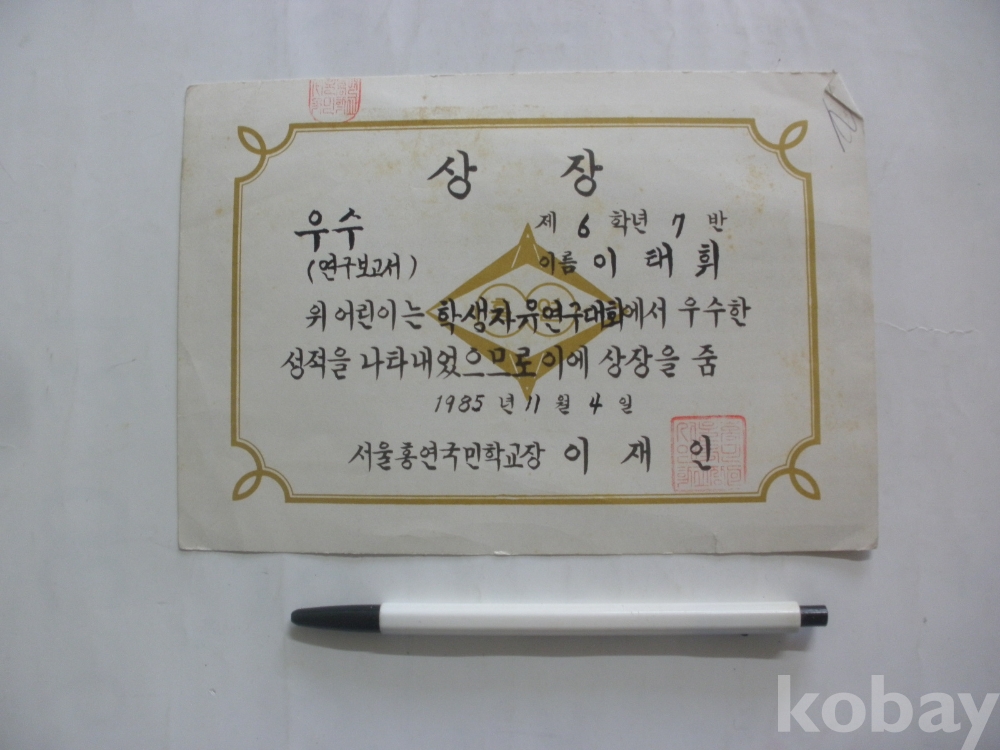 상 장
우수
(연구보고서)
제 6 학년 7 반
이름 이 태 휘
위 어린이는 학생자유연구대회에서 우수한
성적을 나타내었으므로 이에 상장을 줌
1985 년 11 월 4 일
서울홍연국민학교장 이 재 인
kobay